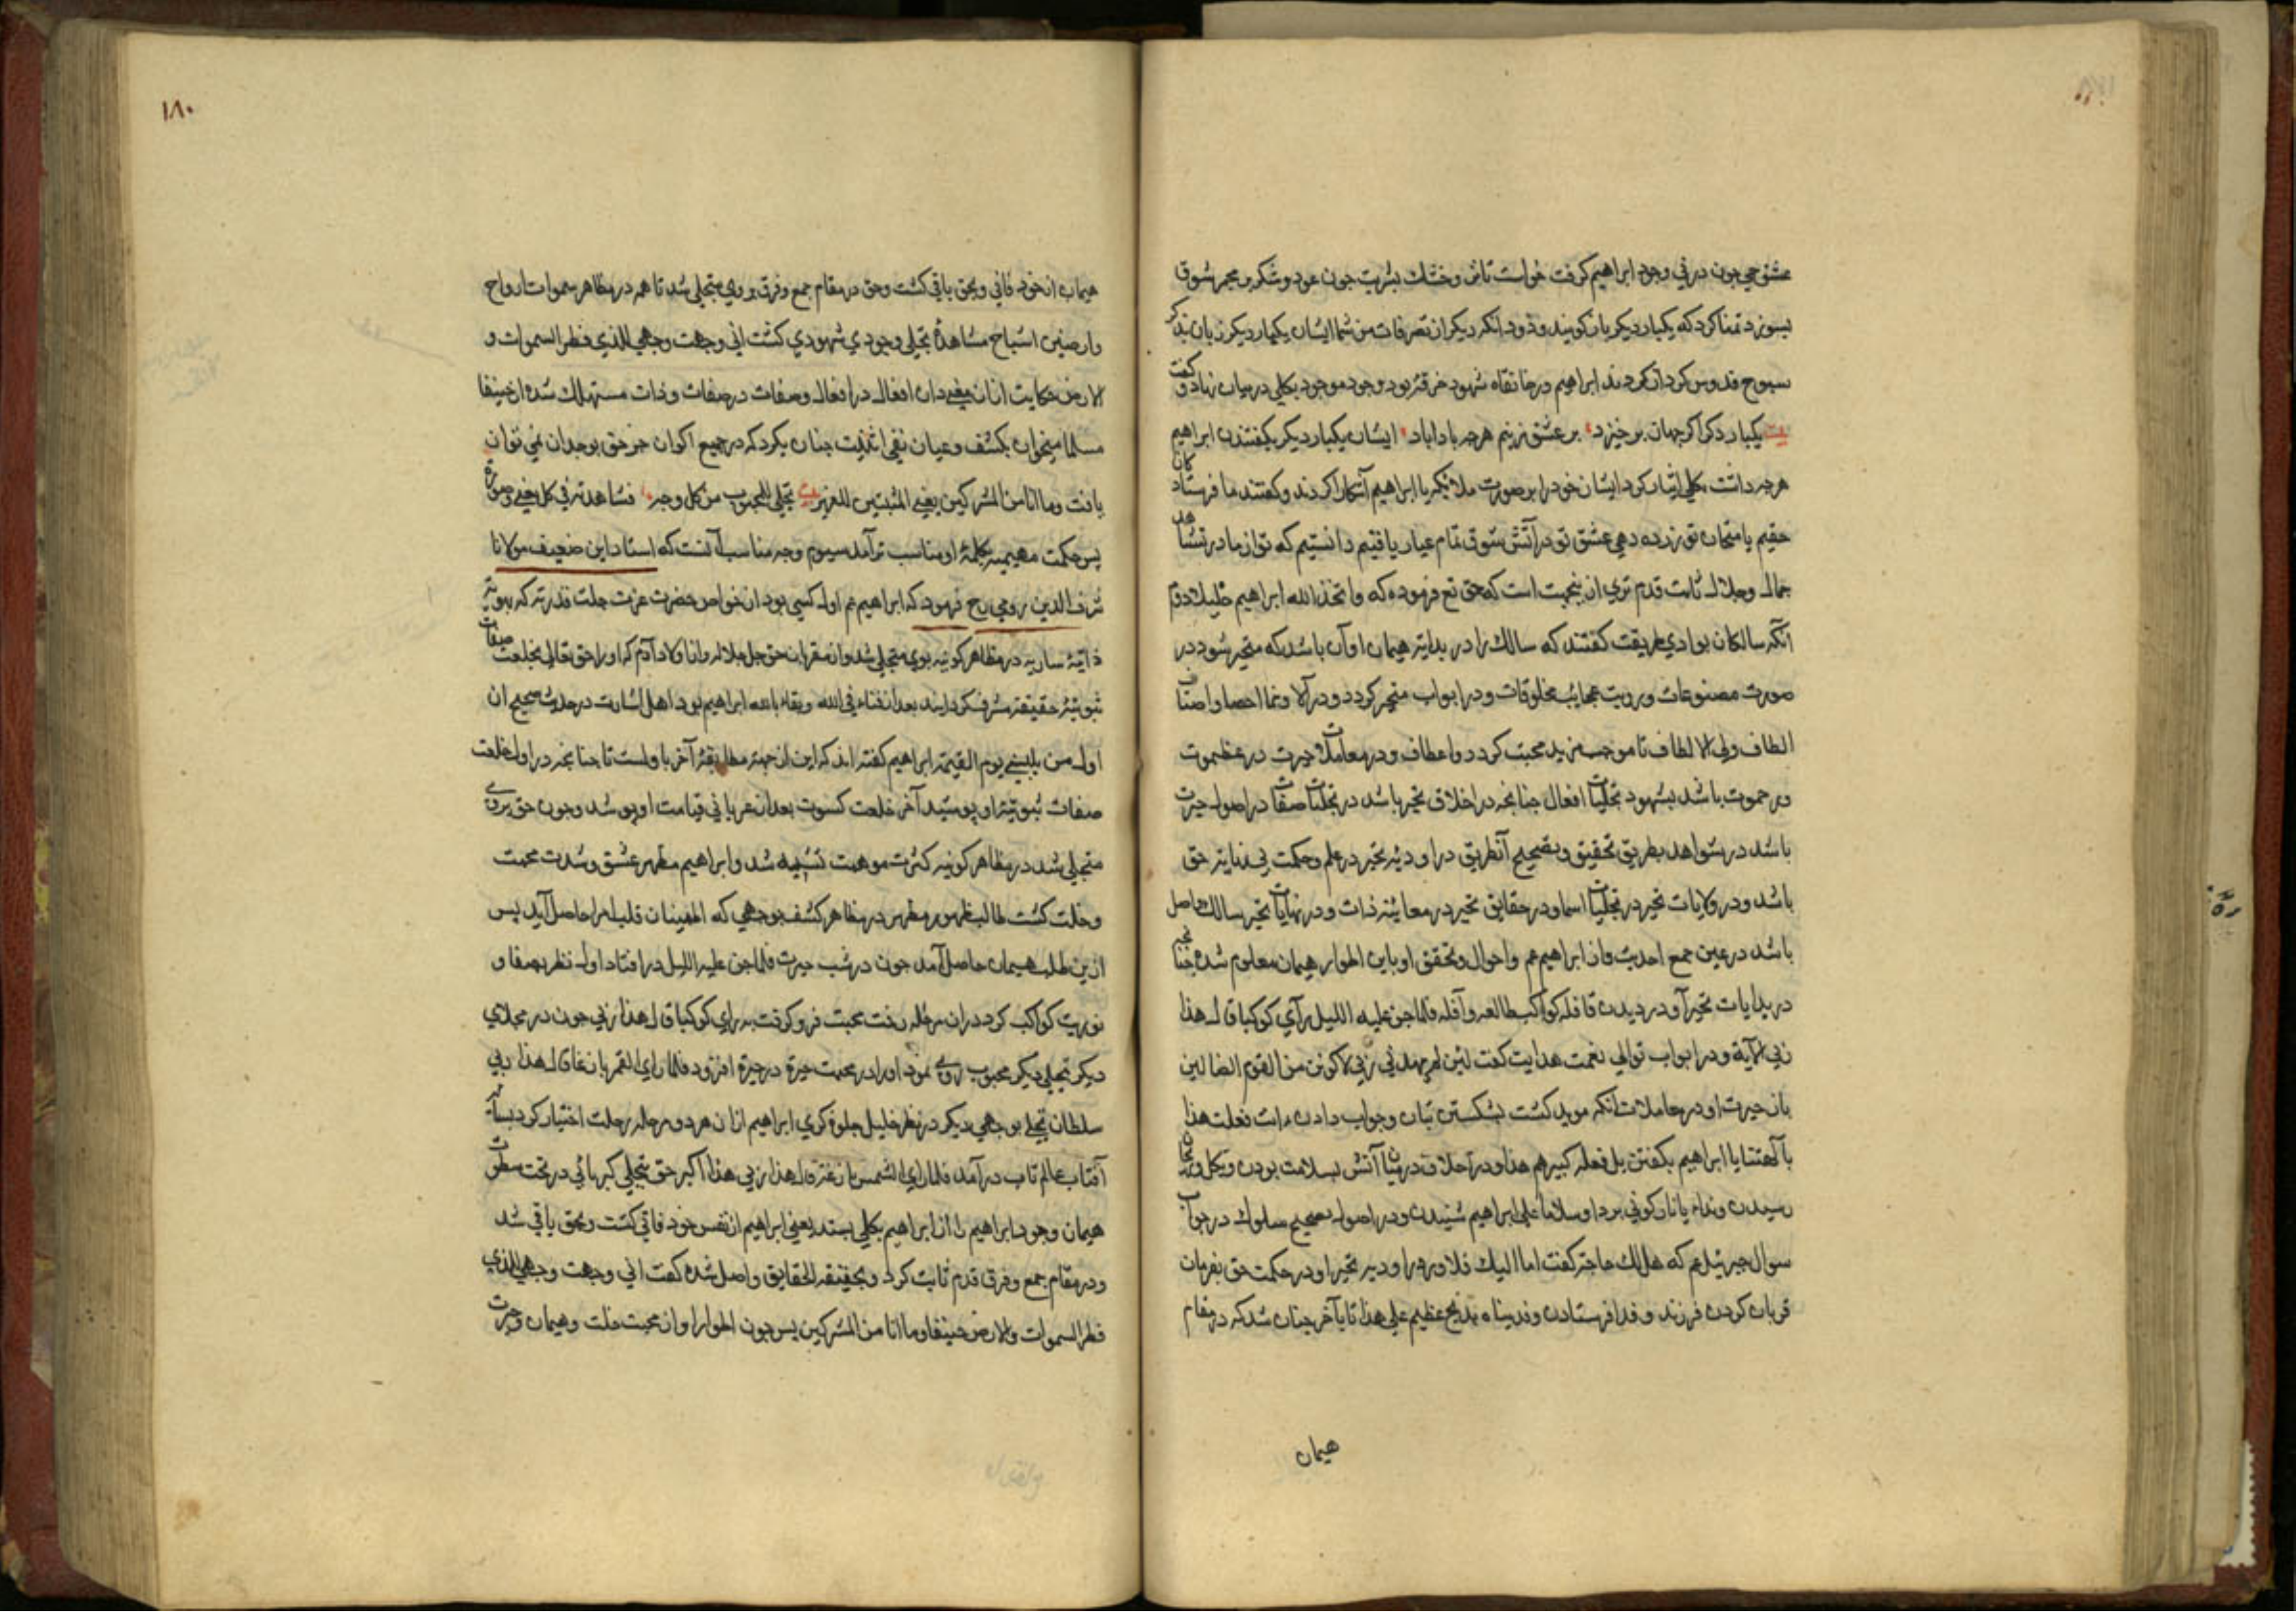 عشق حی چون در نی وجود ابراهیم کرفت خواست تا تر و خشك بشریت چون عود و شکر بر مجمر شوق
بسوزد تمنا کرد که یکبار دیکر باز کویند و ذود آنکه دیکر از تصرفات من شما ایشان یکبار دیکر زبان بذکر
سبوح قدوس کردان کردند ابراهیم در خانقاه شهود خرقه بود وجود موجود بکلی در میان نهاد و کفت
بیت یکبار دکر اکر جهان بر خیزد بر عشق زنیم هرچه بادا باد ایشان یکبار دیکر بکفتند ابراهیم
هرچه داشت بکلی ایثار کرد ایشان خود را بر صورت ملائکه با ابراهیم آشکارا کردند و کفتند ما فرستادکان
حقیم بامتحان تو زر ده دهی عشق تو در آتش شوق تمام عیار یافتیم دانستیم که تو از ما در مشاهده
جمال و جلال ثابت قدم تری از ینجهت است که حق تع فرموده که واتخذ الله ابراهیم خلیلا دوم
آنکه سالکان بوادی طریقت کفتند که سالك را در بدایة هیمان او آن باشد که متحیر شود در
صورت مصنوعات و رویت عجایب مخلوقات و در ابواب متحیر کردد و در آلا و نعما احصا و اصناف
الطاف ولی الالطاف تا موجب مزید محبت کردد و اعطاف و در معاملات حیرت در عظموت
و رحموت باشد بشهود تجلیات افعال چنانچه در اخلاق تحیر باشد در تجلیات صفات در اصول حیرت
باشد در شواهد بطریق تحقیق و بتصحیح آنطریق در اودیه تحیر در علم و حکمت بی نهایة حق
باشد و در ولایات تحیر در تجلیات اسما و در حقایق تحیر در معاینه ذات و در نهایات تحیر سالك حاصل
باشد در عین جمع احدیت و از ابراهیم عم و احوال و تحقق او باین اطوار هیمان معلوم شده چنانچه
در بدایات تحیر آورد در دیدن قافله کواکب طالعه و آفله فلما جن علیه اللیل رآی کوکبا قال هذا
ربی الآیة و در ابواب توالی نعمت هدایت کفت لئن لم یهدنی ربی لاکونن من القوم الضالین
باز حیرت او در معاملات آنکه موید کشت بشکستن بتان و جواب دادن ءانت فعلت هذا
بآلهتنا یا ابراهیم بکفتن بل فعله کبیرهم هذا و در اخلاق در میان آتش بسلامت بودن و بکل
رسیدن و نداء یا نار کونی بردا وسلاما علی ابراهیم شنیدن و در اصول تصحیح سلوك در جواب
سوال جبرئیل عم که هل لك حاجة کفت اما الیك فلا و در اودیه تحیر او در حکمت حق بفرمان
قربان کردن فرزند و فدا فرستادن وفدیناه بذبح عظیم علی هذا تا بآخر چنان شد که در مقام
هیمان
١٨٠
هیمان از خود فانی و بحق باقی کشت و حق در مقام جمع و فرق بر وی متجلی شد تا هم در مظاهر سموات ارواح
وارضین اشباح مشاهدهٔ تجلی وجودی شهودی کشت انی وجهت وجهی للذی فطر السموات و
الارض حکایت از ان معنی دان افعال در افعال وصفات در صفات و ذات مستهلك شده از حنیفا
مسلما میخوان بکشف و عیان نفی اثنیت چنان بکرد که در جمیع اکوان جز حق بوجدان نمی توان
یافت وما انا من المشرکین یعنی المثبتین للغیر بیت تجلی للمحبوب من کل وجه فشاهدته فی کل معنی وصورة
پس حکمت مهیمیه بکلمهٔ او مناسب تر آمد سیوم وجه مناسب آنست که استاد این ضعیف مولانا
شرف الدین رومی رح فرمود که ابراهیم عم اول کسی بود از خواص حضرت عزت جلت قدرته که بهویة
ذاتیهٔ ساریه در مظاهر کونیه بوی متجلی شد و از مقربان حق جل جلاله و از اولاد آدم که او را حق تعالی بخلعت صفات
ثبوتیهٔ حقیقیه مشرف کردانید بعد از فناء فی الله و بقاء بالله ابراهیم بود اهل اشارت در حدیث صحیح ان
اول من یکسی یوم القیمة ابراهیم کفته اند که این از جهت مطابقهٔ آخر با ولست تا چنانچه در اول خلعت
صفات ثبوتیه او پوشید آخر خلعت کسوت بعد از عریانی قیامت او پوشد و چون حق بروی
متجلی شد در مظاهر کونیه کثرت موهبت تشبیه شد و ابراهیم مظهر عشق و شدت محبت
وخلت کشت طالب ظهور مطهر در مظاهر کشف بوجهی که اطمینان قلب مرا حاصل آید پس
ازین طلب هیمان حاصل آمد چون در شب حیرت فلما جن علیه اللیل در افتاد اول نظر بصفا و
نوریت کواکب کرد در ان مرحله رخت محبت فرو کرفت به رای کوکبا قال هذا ربی چون در مجلای
دیکر تجلی دیکر محبوب روی نمود او را در محبت حیرة در حیرة افزود فلما رای القمر بازغا قال هذا ربی
سلطان تجلی بوجهی دیکر در نظر خلیل جلوه کری ابراهیم ازان هر دو مرحله رحلت اختیار کرد
آفتاب عالم تاب در آمد فلما رای الشمس بازغة قال هذا ربی هذا اکبر حق بتجلی کبریائی در تحت سطوت
هیمان وجود ابراهیم را از ابراهیم بکلی بستد یعنی ابراهیم از نفس خود فانی کشت و بحق باقی شد
ودر مقام جمع و فرق قدم ثابت کرد و بحقیقة الحقایق واصل شده کفت انی وجهت وجهی للذی
فطر السموات والارض حنیفا وما انا من المشرکین پس چون اطوار او از محبت خلت و هیمان و حیرت